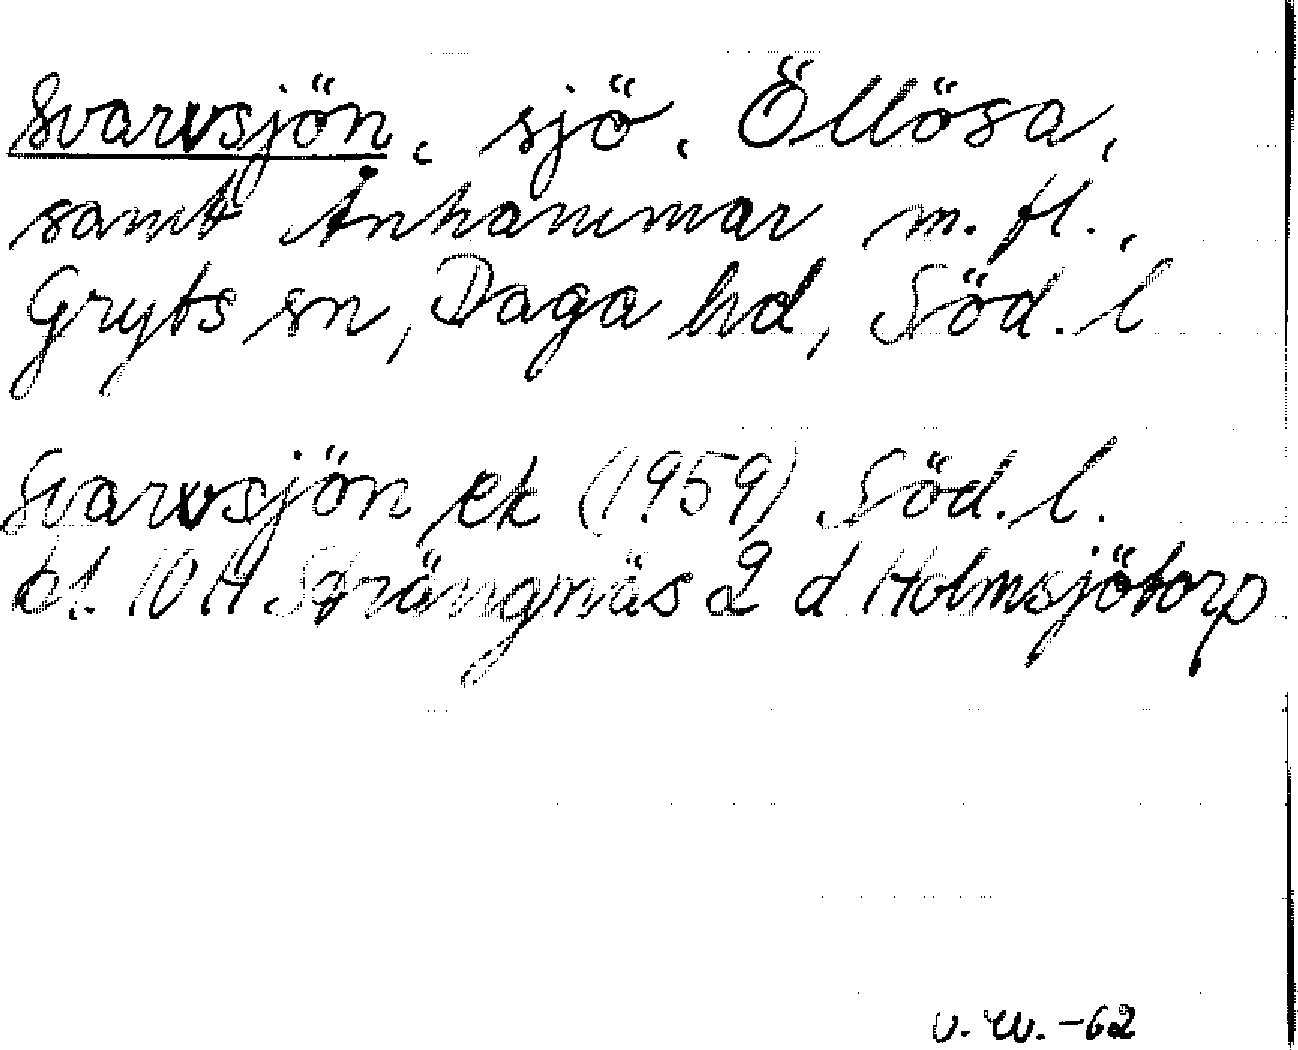 Svarvsjön, sjö, Öllösa,
samt Ånhammar m. fl.,
Gryts sn, Daga hd, Söd. l
Svarvsjön ek (1959) Söd. l.
bl. 10 H Strängnäs 2 d Holmsjötorp
v. W. -62